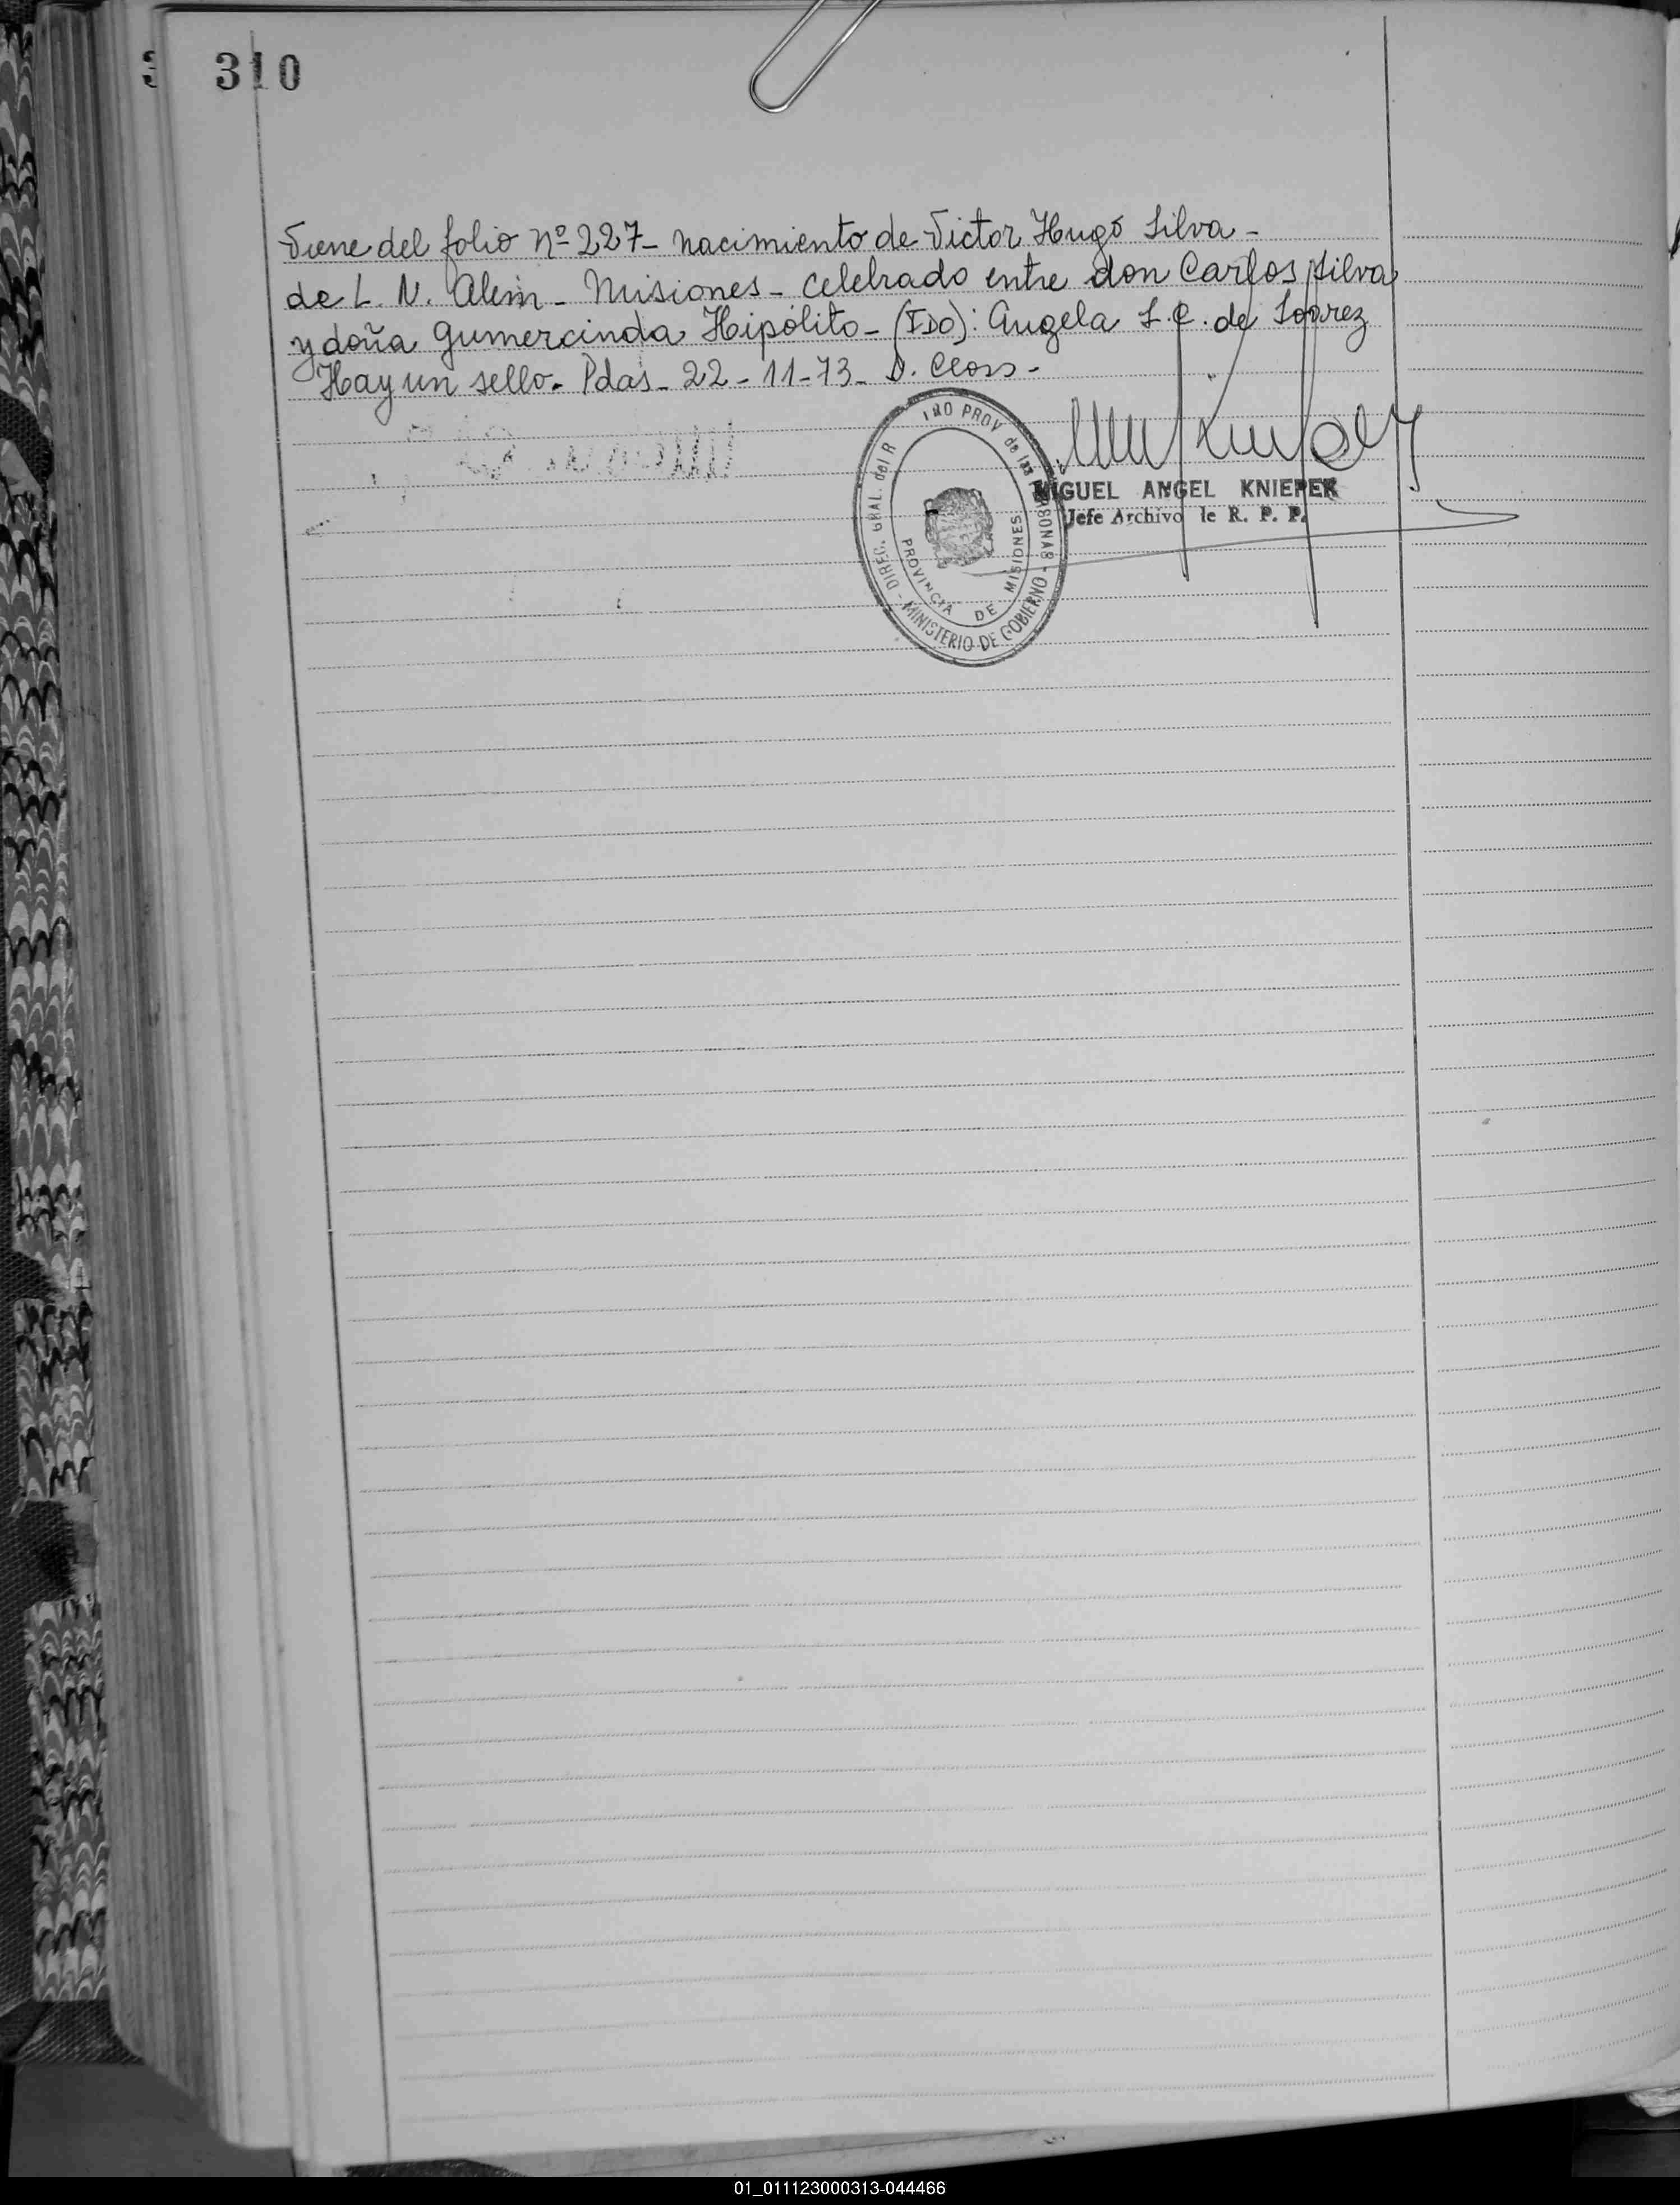 310
Viene del folio nº 227- nacimiento de Victor Hugo Silva -
de L. N. Alem - Misiones - celebrado entre don Carlos Silva
y doña Gumercinda Hipólito - (FDO): Angela S. C. de Soarez
Hay un sello. Pdas - 22 - 11-73 - D. Closs -
DIREC. GRAL. del R PROV de las PERSONAS - MINISTERIO DE GOBIERNO -
PROVINCIA DE MISIONES
MIGUEL ANGEL KNIEPER
Jefe Archivo de R. P. P.
01_011123000313-044466